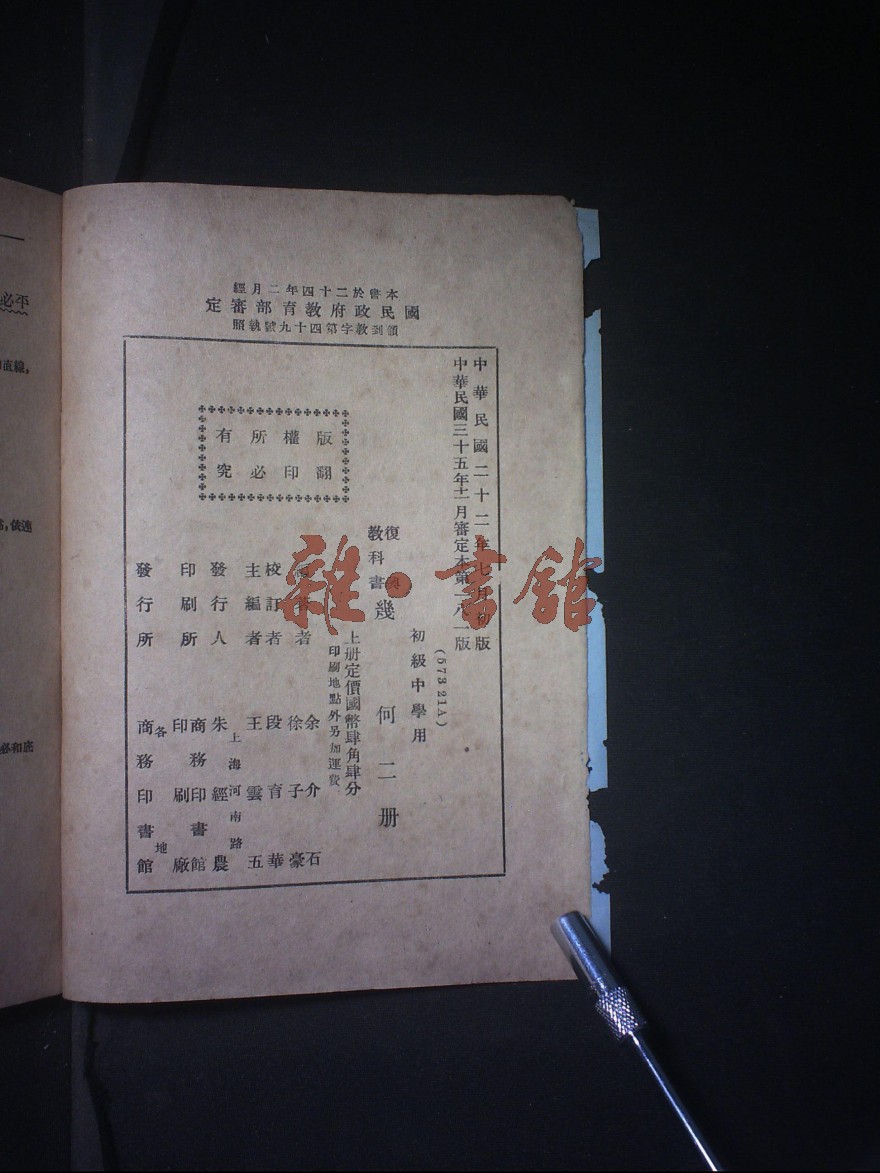 經月二年四十二於書本
定審部育教府政民國
照執號九十四第字教到領
中華民國二十二年七月初版
中華民國三十五年十二月審定本第一八一版
(57321A)
初級中學用
復興
教科書
幾何二册
上册定價國幣肆角肆分
印刷地點外另加運費
者 余介石
徐子豪
校訂者 段育華
主編者 王雲五
上海河南路
發行人 朱經農
印刷所 商務印書館
印刷廠
發行所 商務印書館
各地
版權所有
翻印必究
雜·書館
必平
直線,
依連
必和底